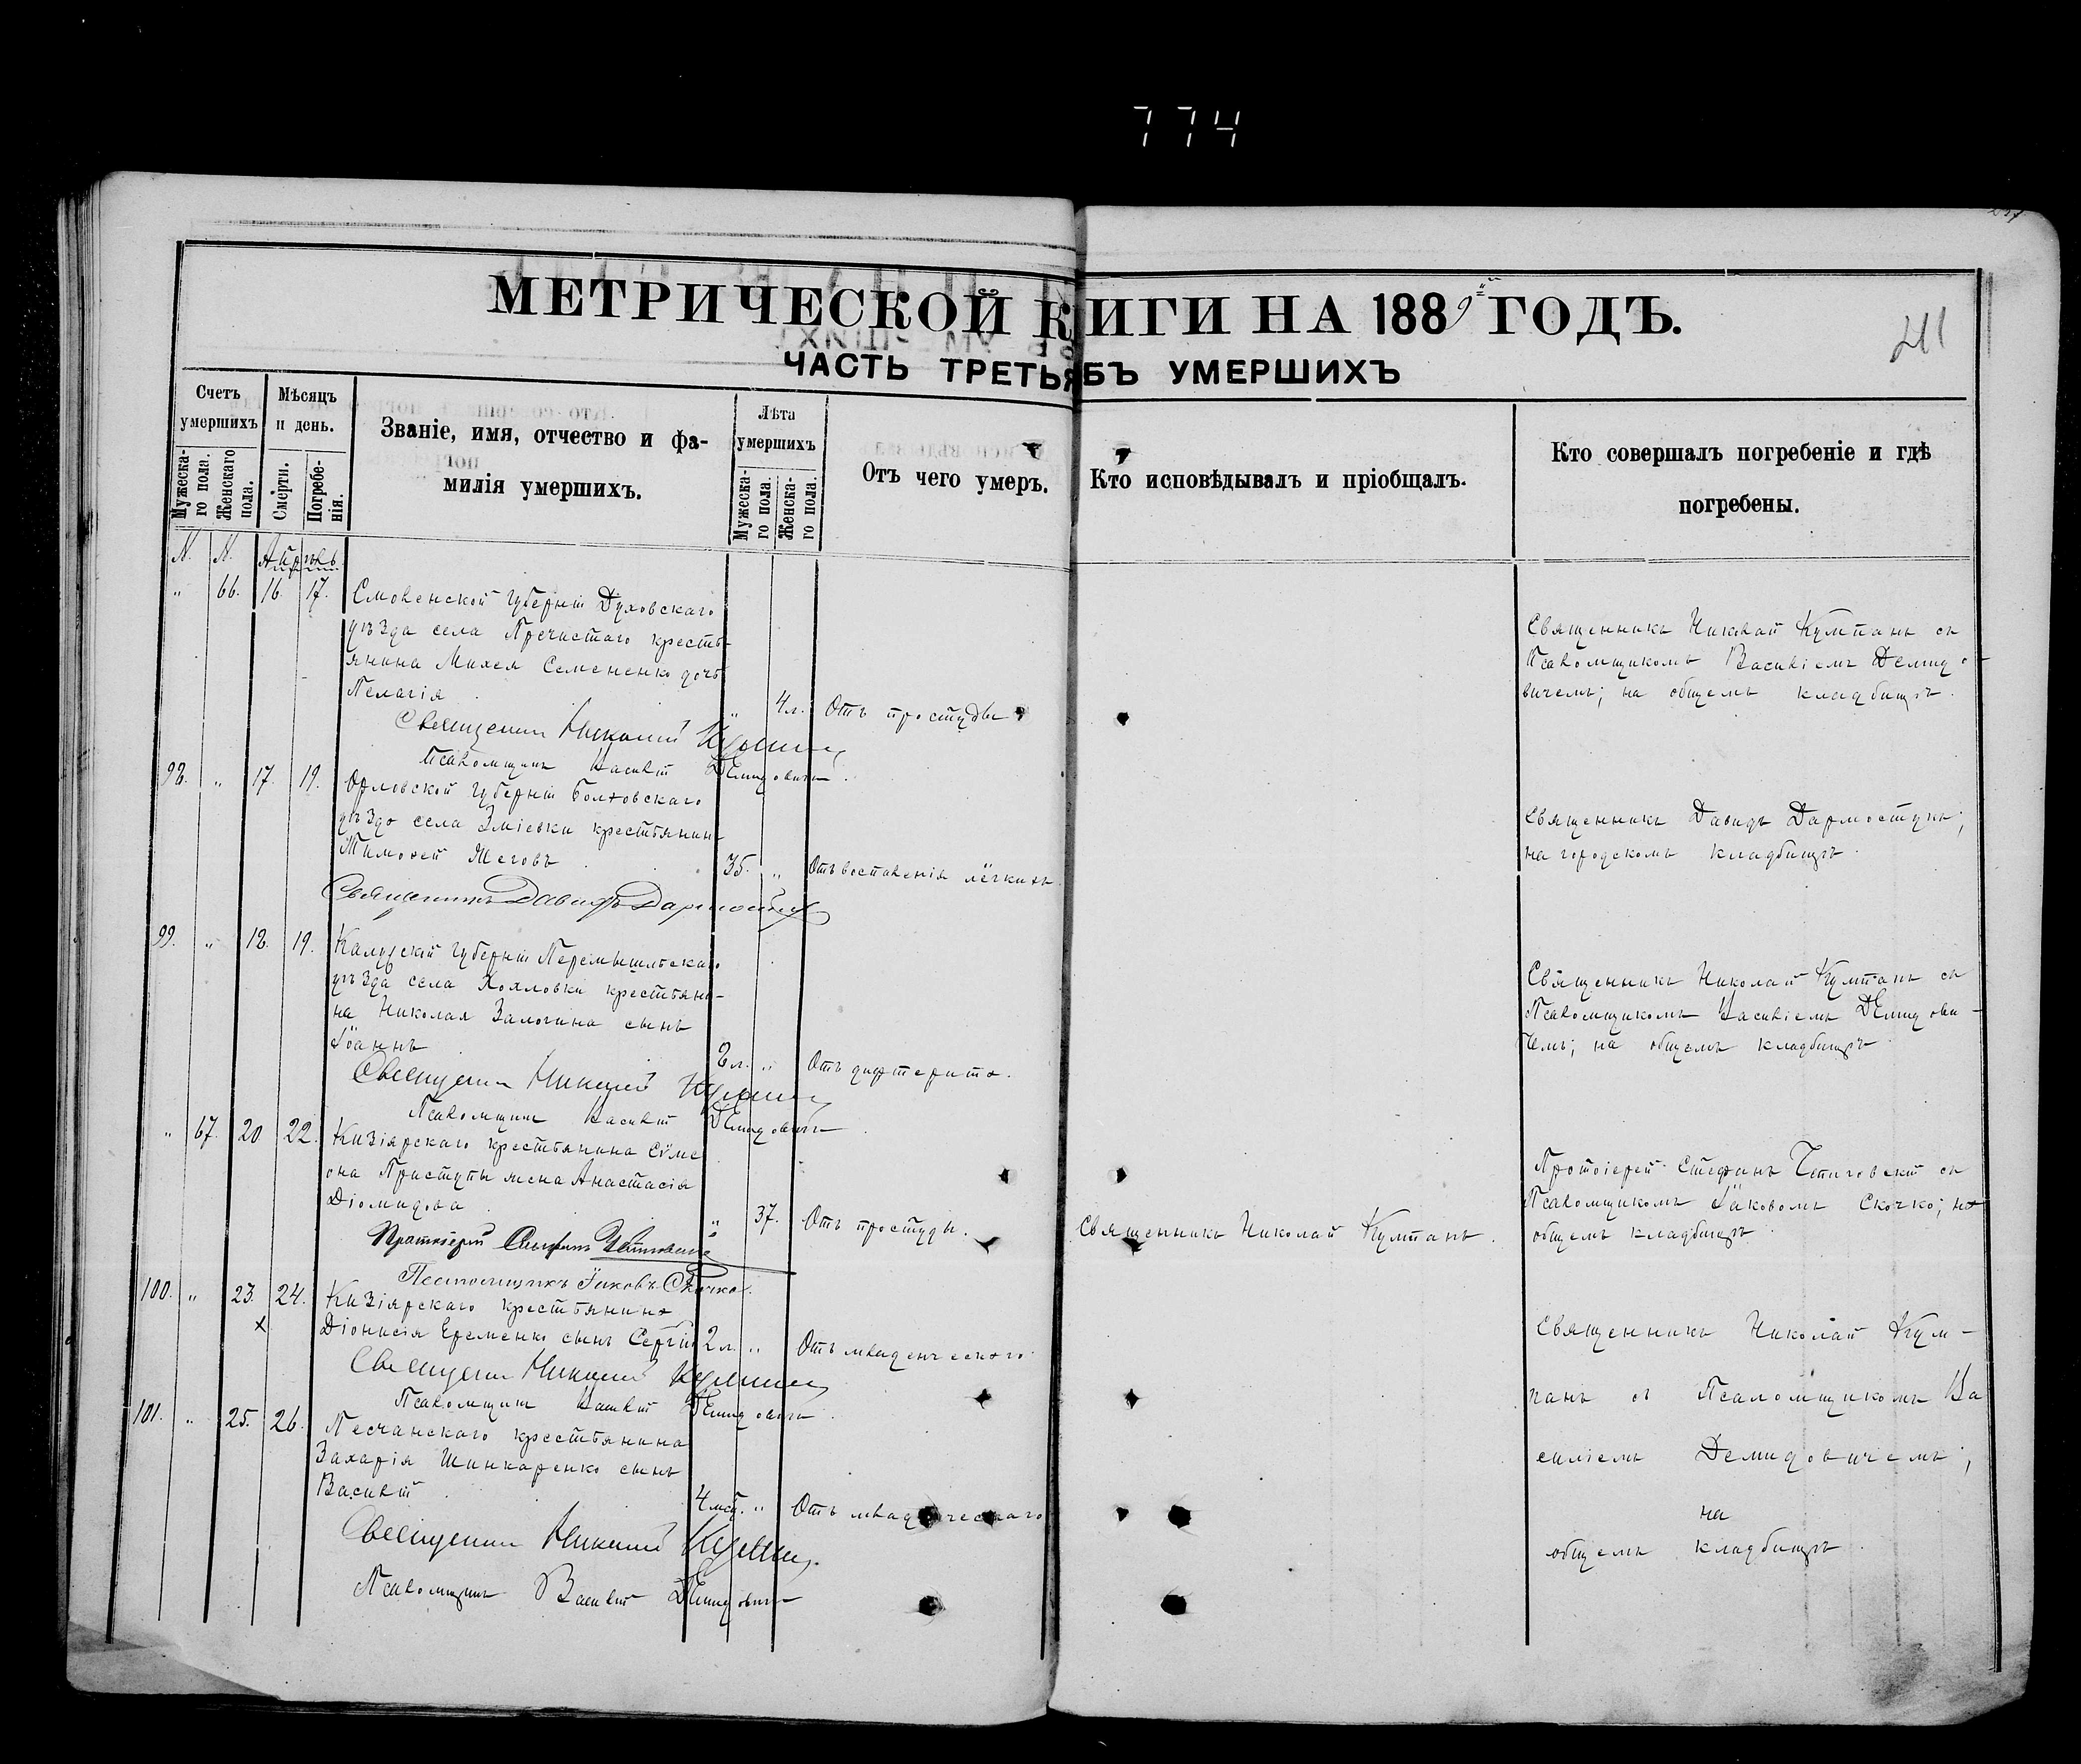 774
МЕТРИЧЕСКОЙ КНИГИ НА 1889й ГОДЪ.
411
ЧАСТЬ ТРЕТЬЯ О БЪ УМЕРШИХЪ
Счетъ умершихъ
Мѣсяцъ и день.
Званіе, имя, отчество и фа-
милія умершихъ.
Лѣта умершихъ
Отъ чего умеръ.
Кто исповѣдывалъ и пріобщалъ.
Кто совершалъ погребеніе и гдѣ
погребены.
Мужеска-
го пола.
Женскаго
пола.
Смерти.
Погребе-
нія.
Мужеска-
го пола.
Женска-
го пола.
N. N. Апрѣль
" 66. 16. 17. Смоленской губерніи Духовскаго
уѣзда села Пречистаго кресть-
янина Михея Семененко дочь
Пелагія " 4 л. Отъ простуды
Священникъ Николай Кумпанъ съ
Псаломщикомъ Василіемъ Демидо-
вичемъ; на общемъ кладбищѣ.
Священник Николай Кумпан
Псаломщикъ Василій Демидовичъ.
98. " 17. 19. Орловской губерніи Болховскаго
уѣзда села Зміевки крестьянин
Тимоѳей Жеговъ 35. " Отъ воспаленія лёгкихъ
Священникъ Давидъ Дармостукъ;
на городскомъ кладбищѣ.
Священникъ Давидъ Дармостук
99. " 18. 19. Калужской губерніи Перемышльскаго
уѣзда села Хохловки крестьяни-
на Николая Залогина сынъ
Іоаннъ 2 л. " Отъ дифтерита.
Священникъ Николай Кумпанъ съ
Псаломщикомъ Василіемъ Демидови-
чемъ; на общемъ кладбищѣ
Священник Николай Кумпан
Псаломщикъ Василій Демидовичъ
" 67. 20 22. Кизіярскаго крестьянина Сѵме
она Приступы жена Анастасія
Діомидова " 37. Отъ простуды.
Священникъ Николай Кумпанъ.
Протоіерей Стефанъ съ
Псаломщикомъ Іаковомъ Скочко; на
общемъ кладбищѣ
Протоіерей Стефанъ
Псаломщикъ Іаковъ Скочко.
100. " 23. 24. Кизіярскаго крестьянина
Діонисія Еременко сынъ Сергій 2 л. " Отъ младенческаго
Священникъ Николай Кум-
панъ съ Псаломщикомъ Ва
силіемъ Демидовичемъ;
на
общемъ кладбищѣ.
Священник Николай Кумпан
Псаломщикъ Василій Демидовичъ.
101. " 25. 26. Песчанскаго крестьянина
Захарія Шинкаренко сынъ
Василій 4 мѣс. " Отъ младенческаго
Священник Николай Кумпан.
Псаломщикъ Василій Демидовичъ